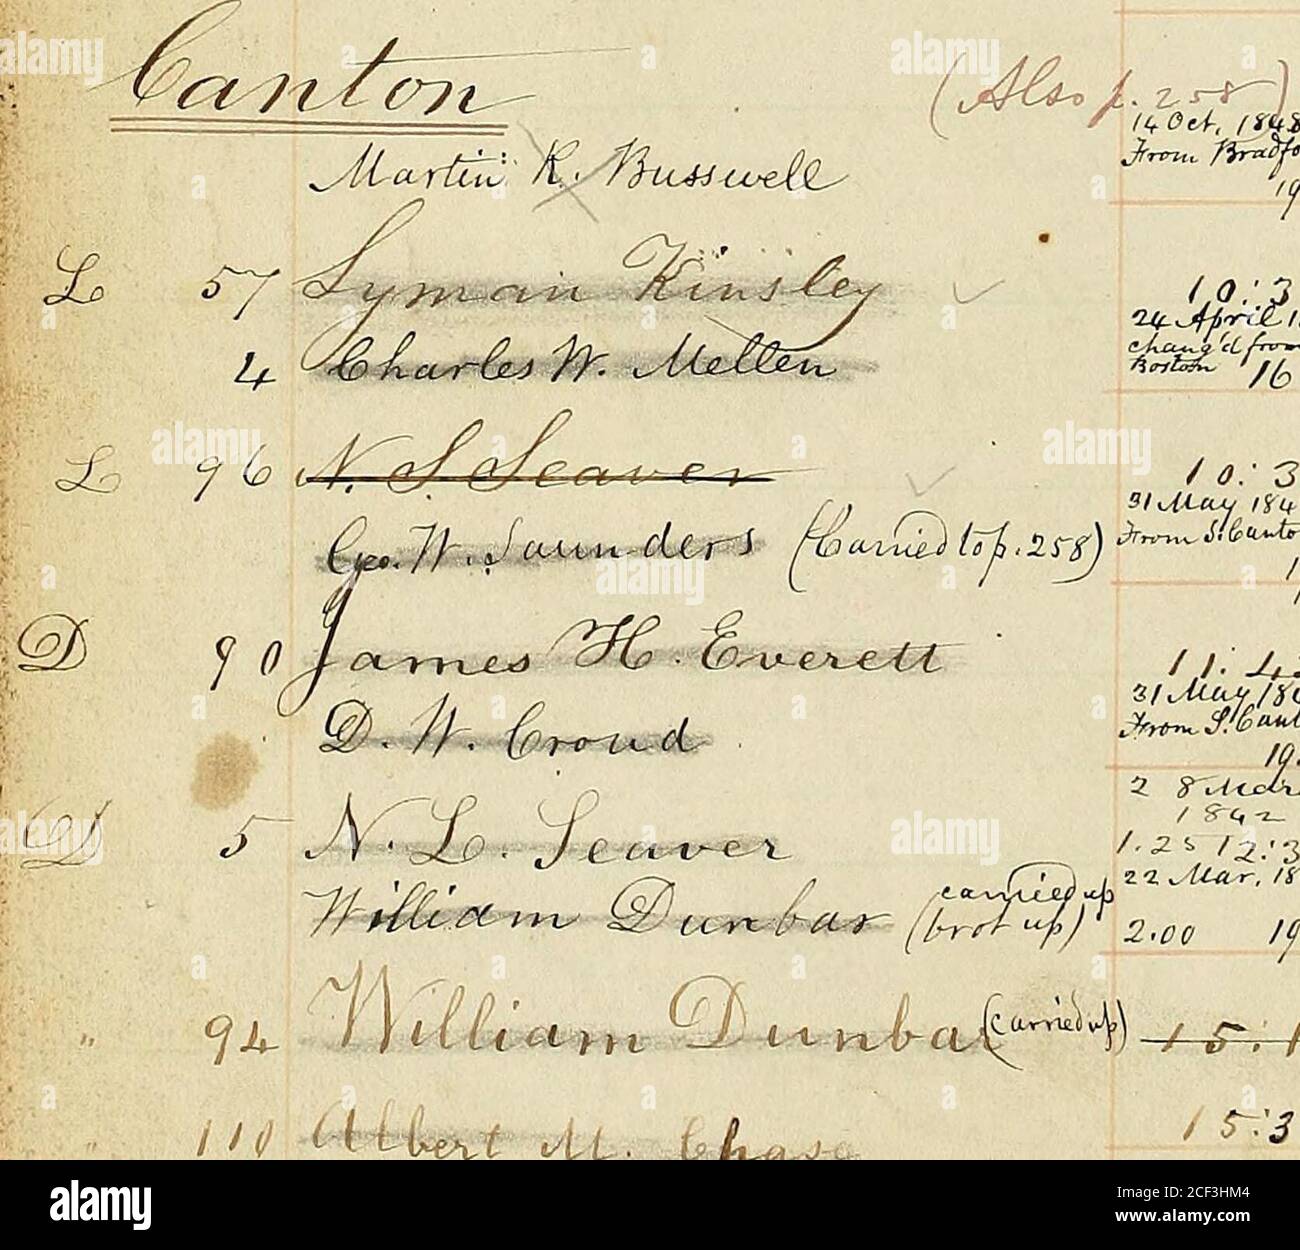 Canton
(Also p. 258)
14 Oct, 1848
From Bradfo
19
Martin R. Busswell
L 57 Lyman Kinsley 10:3
24 April 1
4 Charles W. Mellen chang'd from
Boston 16
L 96 N. S. Seaver 10:3
31 May 184
Geo. W. Saunders (Carried to p. 258) From S. Canto
1
D 90 James H. Everett 11:4
31 May 18
D. W. Croud From S. Cant
19
2 8 Mar
1842
D 5 N. L. Seaver 1.25 12:3
carried up 22 Mar, 18
William Dunbar (brot up) 2.00 19
" 94 William Dunbar (carried up) 15:1
" 110 Albert M. Chase 15:3
alamy
Image ID: 2CF3HM4
www.alamy.com